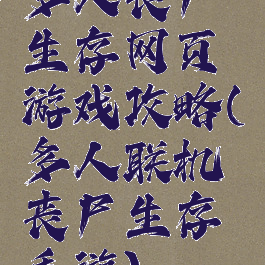 多人丧尸
生存网页
游戏攻略(
多人联机
丧尸生存
手游)